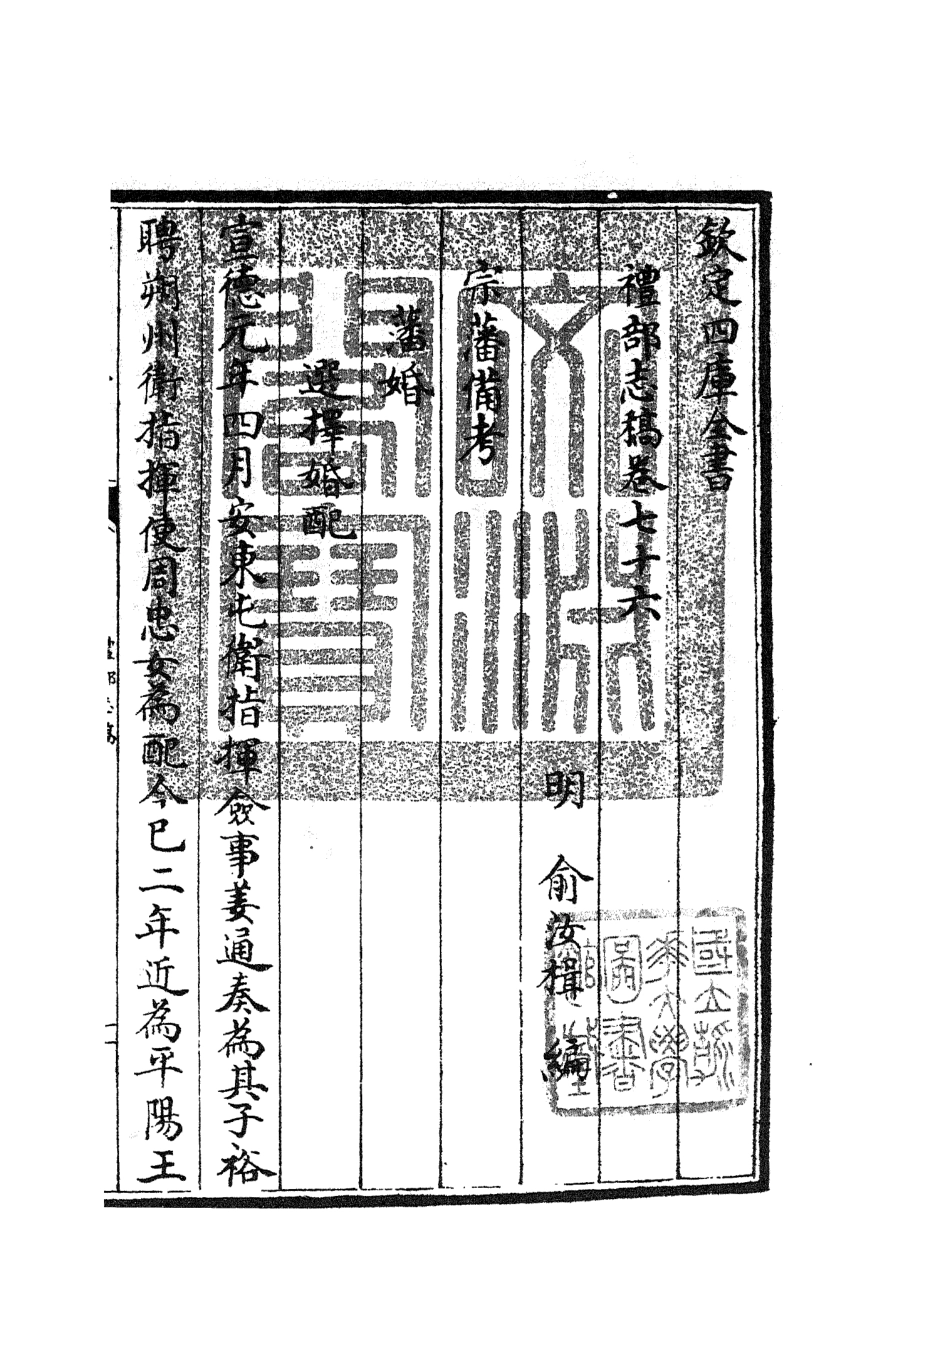 欽定四庫全書
禮部志稿卷七十六
明 俞汝楫 編
宗藩備考
藩婚
選擇婚配
宣德元年四月安東屯衛指揮僉事姜通奏為其子裕
聘朔州衛指揮使周忠女為配今已二年近為平陽王